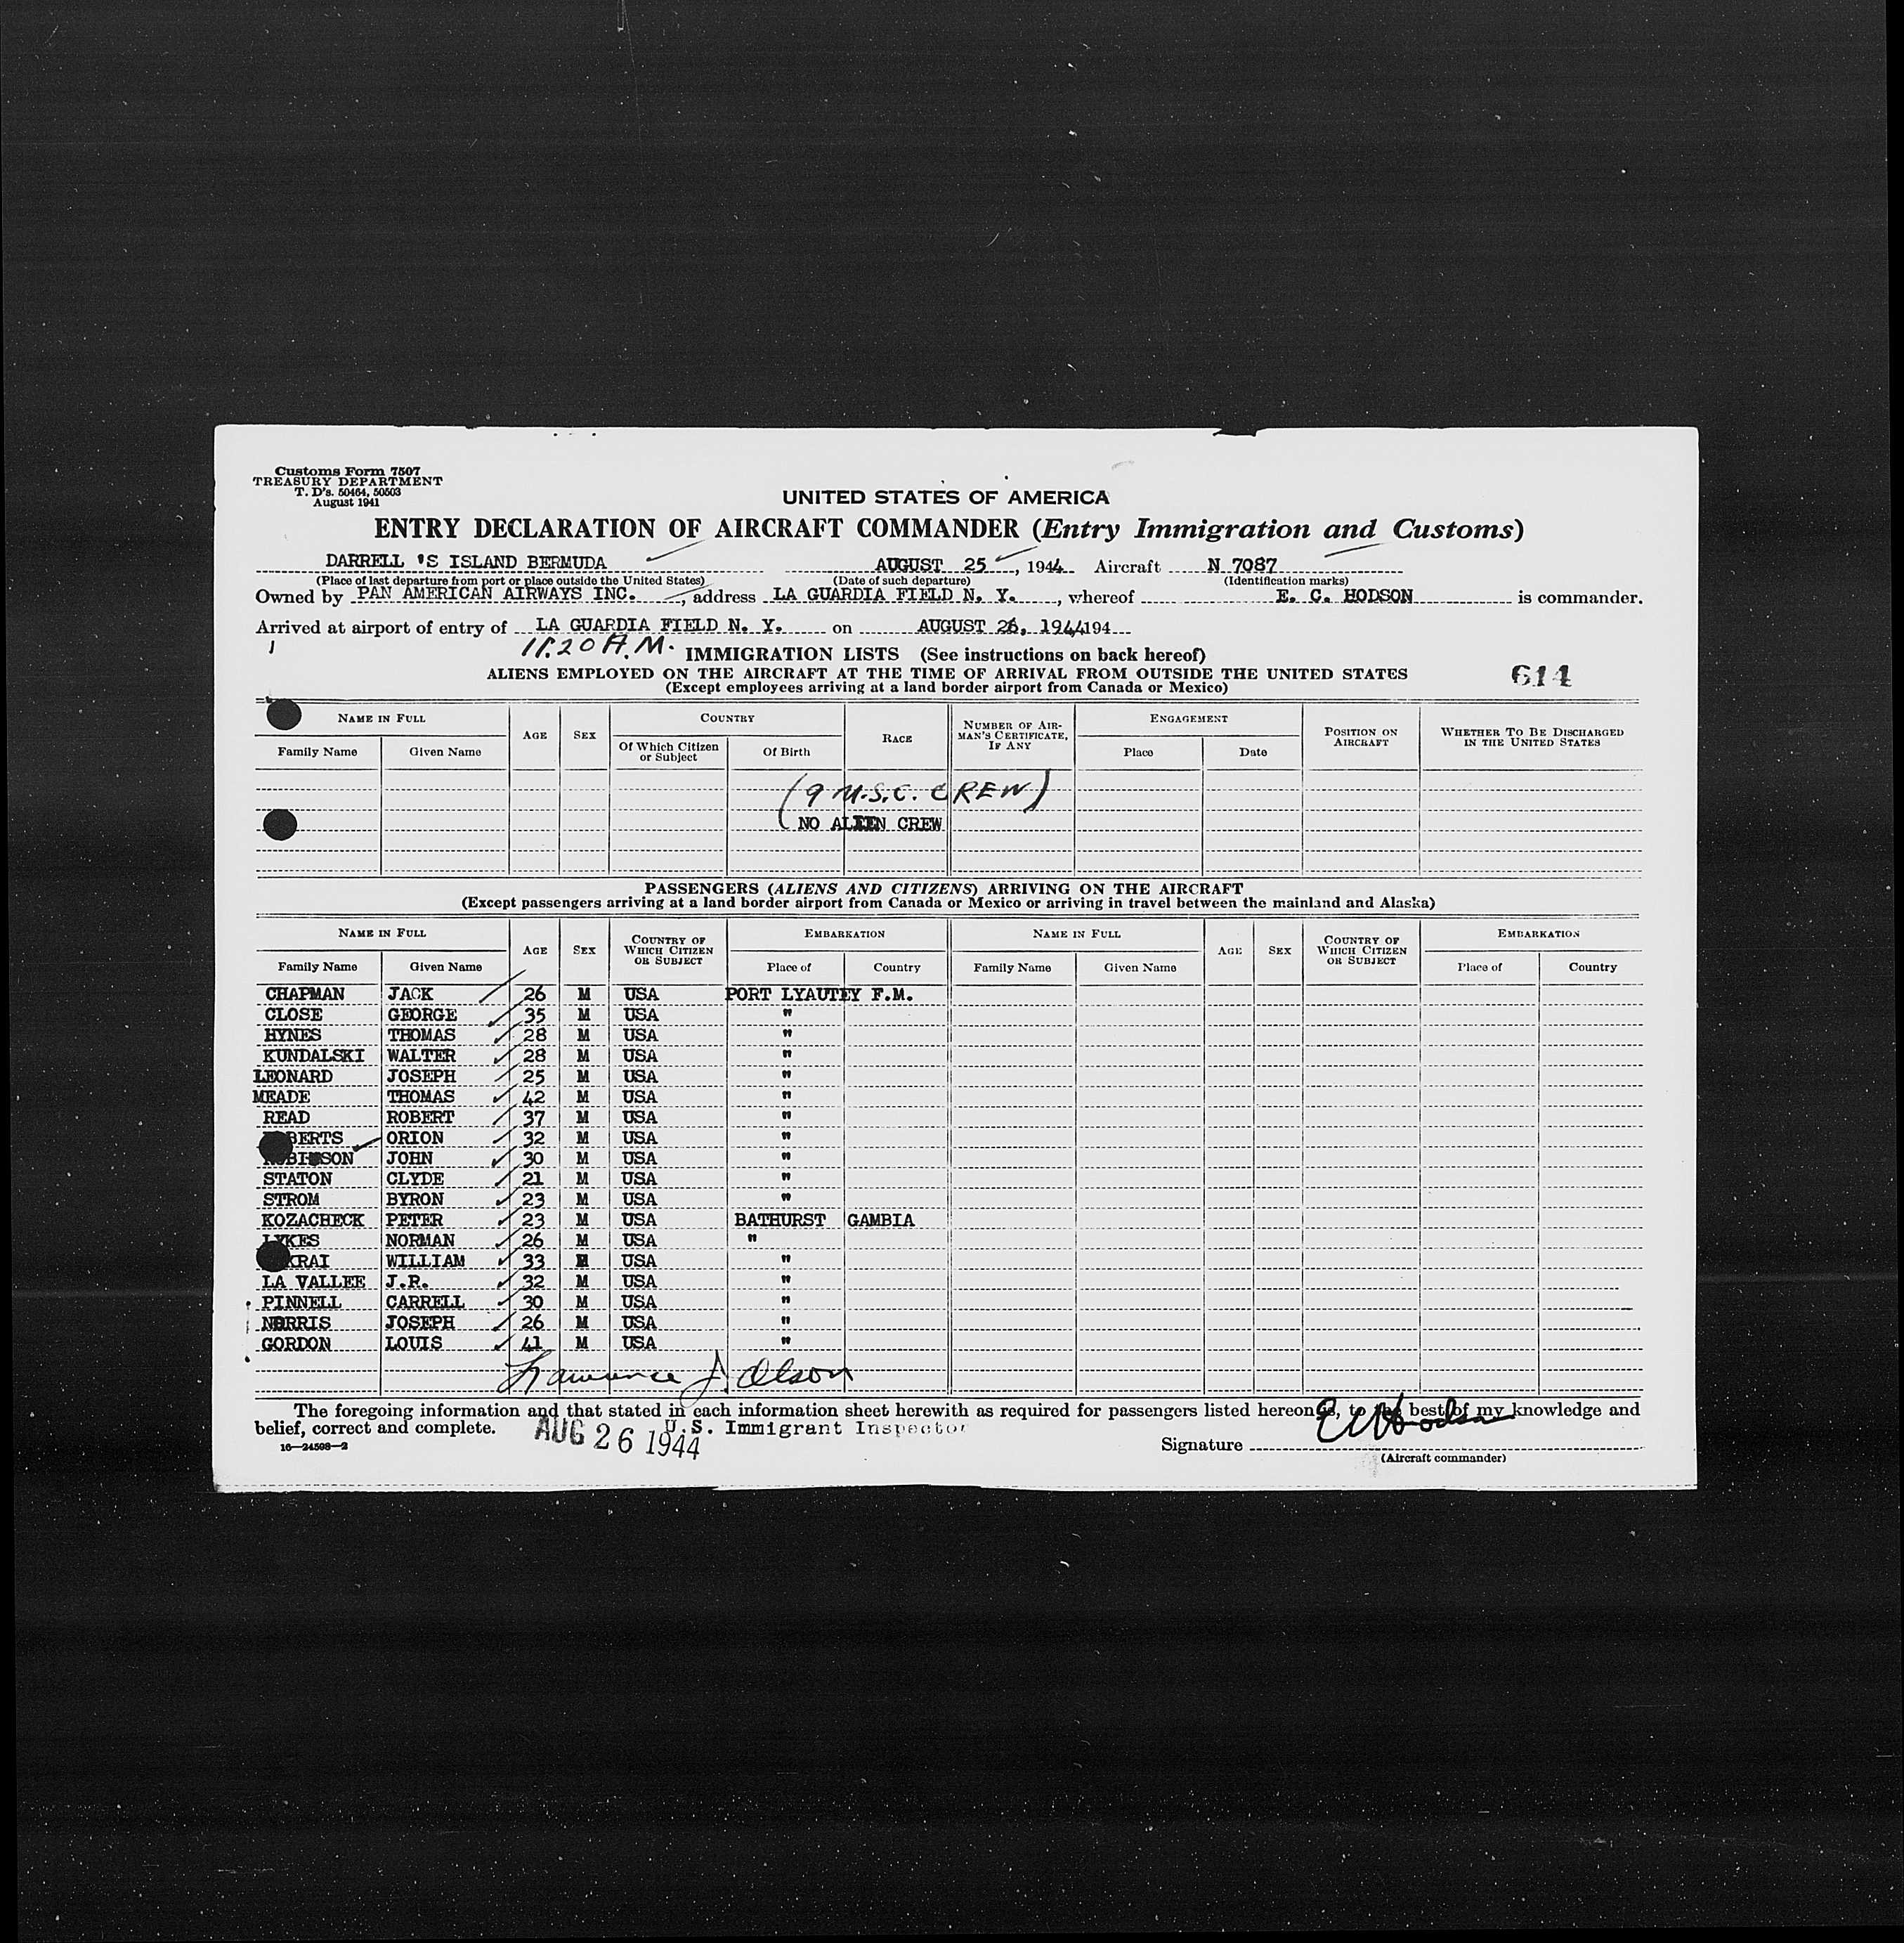 Customs Form 7507
TREASURY DEPARTMENT
T. D's. 50464, 50503
August 1941
UNITED STATES OF AMERICA
ENTRY DECLARATION OF AIRCRAFT COMMANDER (Entry Immigration and Customs)
DARRELL 'S ISLAND BERMUDA AUGUST 25, 1944 Aircraft N 7087
(Place of last departure from port or place outside the United States) (Date of such departure) (Identification marks)
Owned by PAN AMERICAN AIRWAYS INC., address LA GUARDIA FIELD N. Y., whereof E. C. HODSON is commander.
Arrived at airport of entry of LA GUARDIA FIELD N. Y. on AUGUST 26, 1944 194
11:20 A.M. IMMIGRATION LISTS (See instructions on back hereof)
ALIENS EMPLOYED ON THE AIRCRAFT AT THE TIME OF ARRIVAL FROM OUTSIDE THE UNITED STATES
614
(Except employees arriving at a land border airport from Canada or Mexico)
NAME IN FULL AGE SEX COUNTRY RACE NUMBER OF AIRMAN'S CERTIFICATE, IF ANY ENGAGEMENT POSITION ON AIRCRAFT WHETHER TO BE DISCHARGED IN THE UNITED STATES
Family Name Given Name Of Which Citizen or Subject Of Birth Place Date
(9 U.S.C. CREW)
NO ALIEN CREW
PASSENGERS (ALIENS AND CITIZENS) ARRIVING ON THE AIRCRAFT
(Except passengers arriving at a land border airport from Canada or Mexico or arriving in travel between the mainland and Alaska)
NAME IN FULL AGE SEX COUNTRY OF WHICH CITIZEN OR SUBJECT EMBARKATION NAME IN FULL AGE SEX COUNTRY OF WHICH CITIZEN OR SUBJECT EMBARKATION
Family Name Given Name Place of Country Family Name Given Name Place of Country
CHAPMAN JACK 26 M USA PORT LYAUTEY F.M.
CLOSE GEORGE 35 M USA "
HYNES THOMAS 28 M USA "
KUNDALSKI WALTER 28 M USA "
LEONARD JOSEPH 25 M USA "
MEADE THOMAS 42 M USA "
READ ROBERT 37 M USA "
BERTS ORION 32 M USA "
BINSON JOHN 30 M USA "
STATON CLYDE 21 M USA "
STROM BYRON 23 M USA "
KOZACHECK PETER 23 M USA BATHURST GAMBIA
LYKES NORMAN 26 M USA "
KRAI WILLIAM 33 M USA "
LA VALLEE J.R. 32 M USA "
PINNELL CARRELL 30 M USA "
NORRIS JOSEPH 26 M USA "
GORDON LOUIS 41 M USA "
Lawrence J. Olson
The foregoing information and that stated in each information sheet herewith as required for passengers listed hereon is, to the best of my knowledge and
belief, correct and complete. AUG 26 1944 U.S. Immigrant Inspector
16—24598—2
Signature E C Hodson
(Aircraft commander)